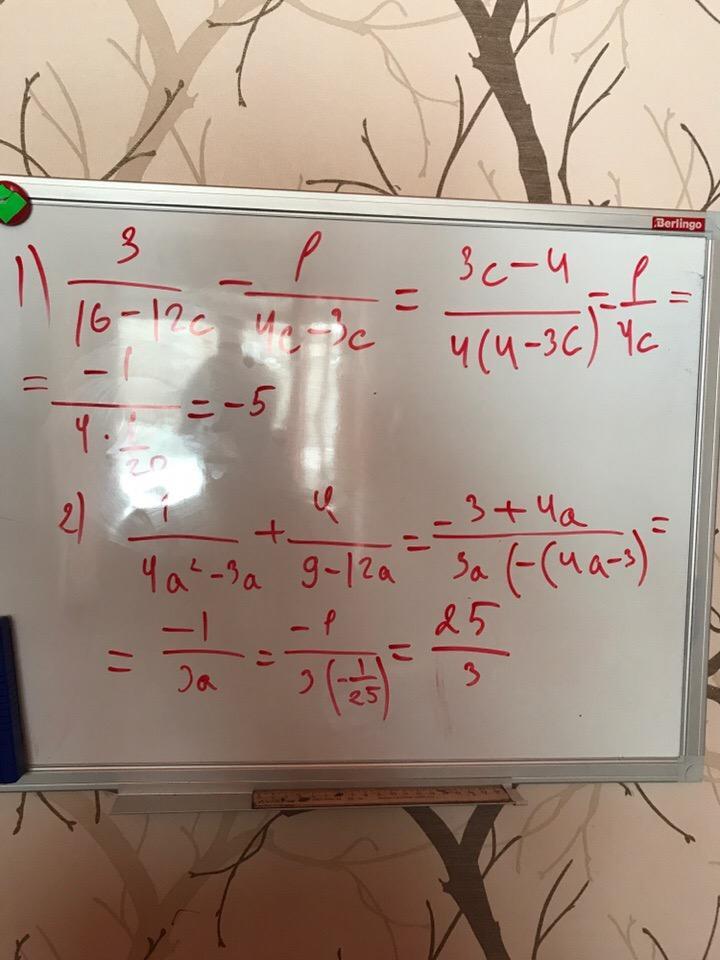 Berlingo
1) 3/(16-12c) - 1/(4c-3c) = (3c-4)/(4(4-3c)) = 1/4c =
= -1/(4·1/20) = -5
2) 1/(4a²-3a) + 4/(9-12a) = (-3+4a)/(3a(-(4a-3)) =
= -1/3a = -1/(3(-1/25)) = 25/3